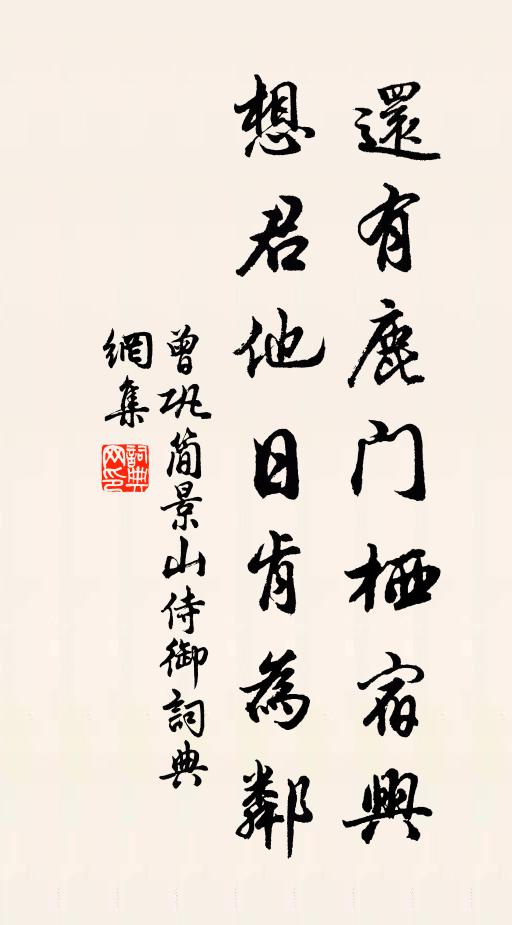 還有鹿門栖宿興
想君他日肯為鄰
曾巩簡景山侍御詞典
網集
詞典
网印